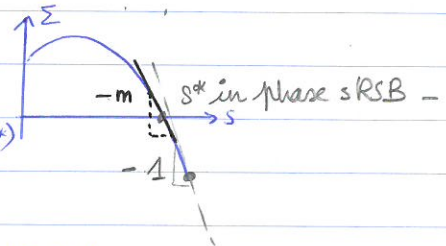 Σ
-m s* in phase sRSB -
s
*)
-1